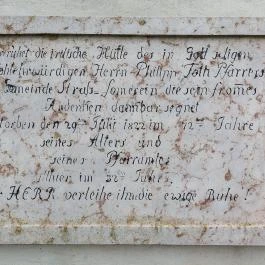 ruhet die irdische Hülle des in Gott seligen
wohlehrwürdigen Herrn Philipp Toth Pfarrers
Gemeinde Strass-Somerein die sein fromes
Andenken dankbar segnet
storben den 29ten Juli 1822 im 72ten Jahre
seines Alters und
seines Pfarramtes
Alhier im 32ten Jahre.
HERR verleihe ihm die ewige Ruhe!